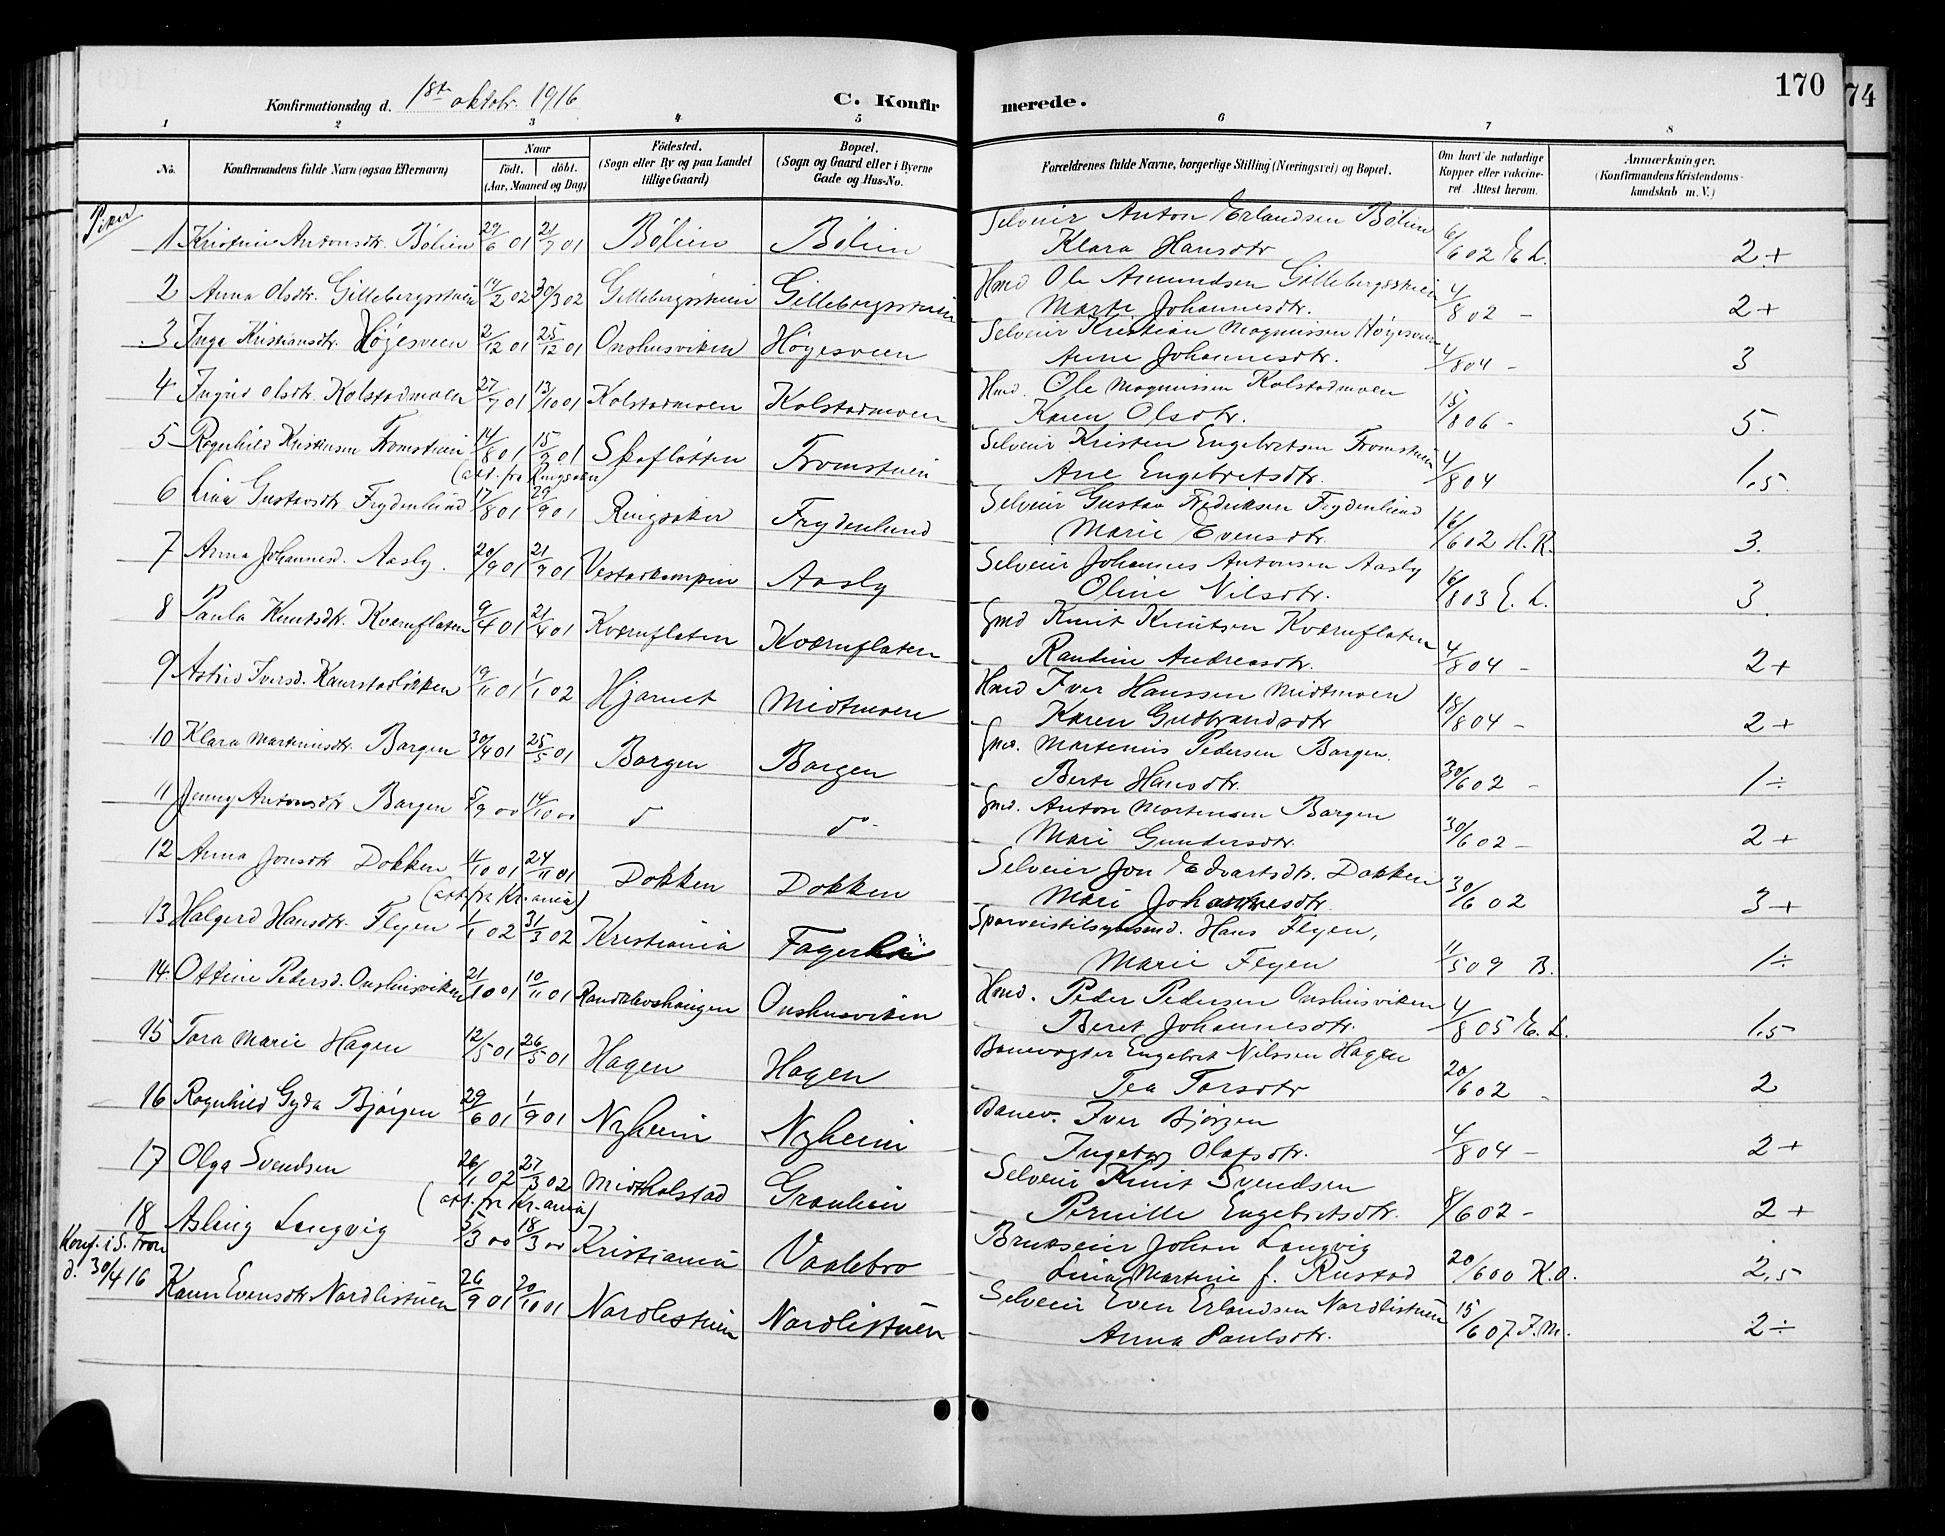 Konfirmationsdag d. 1ste oktobr. 1916 C. Konfirmerede. 170
74
1 2 3 4 5 6 7 8
No. Konfirmandens fulde Navn (ogsaa Efternavn) Naar født. døbt. (Aar, Maaned og Dag) Fødested. (Sogn eller By og paa Landet tillige Gaard) Bopæl. (Sogn og Gaard eller i Byerne Gade og Hus-No. Forældrenes fulde Navne, borgerlige Stilling (Næringsvei) og Bopæl. Om havt de naturlige Kopper eller vakcineret Attest herom. Anmærkninger. (Konfirmandens Kristendomskundskab m. V.)
Piker
1 Kristine Antonsdtr. Bølien 29/6 01 21/7 01 Bølien Bølien Selveier Anton Erlandsen Bølien
Klara Hansdtr 6/6 02 E. L. 2+
2 Anna Olsdtr. Gillebergsstuen 14/2 02 30/3 02 Gillebergsstuen Gillebergsstuen Hmd Ole Amundsen Gillebergsstuen
Marte Johannesdtr. 4/8 02 - 2+
3 Inga Kristiansdtr. Høgesveen 2/12 01 25/12 01 Onshusviken Høgesveen Selveier Kristian Magnussen Høgesveen
Anne Johannesdtr. 4/8 04 - 3
4 Ingrid Olsdtr. Kolstadmoen 27/7 01 13/10 01 Kolstadmoen Kolstadmoen Hmd. Ole Magnussen Kolstadmoen
Karen Olsdtr. 15/8 06 - 5.
5 Ragnhild Kristensen Fromstuen 14/8 01 15/9 01 Skafløtten Fromstuen Selveier Kristen Engebretsen Fromstuen
Ane Engebretsdtr. 4/8 04 1,5.
(att. fra Ringsaker)
6 Lina Gustavsdtr Frydenlund 17/8 01 29/9 01 Ringsaker Frydenlund Selveier Gustav Fredriksen Frydenlund
Marie Evensdtr. 16/6 02 H. R. 3.
7 Anna Johannesd. Aasly. 20/9 01 21/9 01 Vestadkampen Aasly Selveier Johannes Antonsen Aasly
Oline Nilsdtr. 16/8 03 E. L. 3.
8 Paula Knutsdtr. Kværnflaten 9/4 01 21/4 01 Kværnflaten Kværnflaten Gmd Knut Knutsen Kværnflaten
Randine Andreasdtr. 4/8 04 - 2+
9 Astrid Iversd. Kaurstadløkken 19/11 01 1/1 02 Hjarnet Midtmoen Hmd Iver Hanssen Midtmoen
Karen Gudbrandsdtr 18/8 04 - 2+
10 Klara Martinusdtr. Bargen 30/4 01 25/5 01 Borgen Borgen Gmd. Martinus Pedersen Borgen.
Berte Hansdtr. 30/6 02 - 1÷
11 Jenny Antonsdtr Borgen 5/9 00 14/10 00 do do Gmd. Anton Mortensen Borgen
Mari Gundersdtr. 30/6 02 - 2+
12 Anna Jonsdtr Dokken 11/10 01 24/11 01 Dokken Dokken Selveier Jon Edvartsdt. Dokken
Mari Johannesdtr. 30/6 02 3+
(att. fra Kr.ania)
13 Halgerd Hansdtr. Flyen 1/1 02 31/3 02 Kristiania Fagerhøi Sporveistilsynsmd. Hans Flyen,
Marie Flyen 11/5 09 B. 1÷
14 Ottine Petersd. Onshusviken 21/10 01 10/11 01 Randkleivshaugen Onshusviken Hmd. Peder Pedersen Onshusviken
Beret Johannesdtr. 4/8 05 E. L. 1,5
15 Tora Marie Hagen 12/5 01 26/5 01 Hagen Hagen Banevogter Engebret Nilssen Hagen
Tea Torsdtr 20/6 02 - 2
16 Ragnhild Gyda Bjørgen 29/6 01 1/9 01 Nyheim Nyheim Banev. Iver Bjørgen
Ingeborg Olafsdtr. 4/8 04 - 2+
17 Olga Svendsen 26/1 02 27/3 02 Midtkolstad Granlien Selveier Knut Svendsen
Pernille Engebretsdtr. 8/6 02 - 2+
(att. fra Kr.ania)
18 Aslaug Langvig 5/3 00 18/3 00 Kristiania Vaalebro Brukseier Johan Langvig
Lina Martine f. Rustad 20/6 00 K.O. 2,5
Konf. i S. Fron d. 30/4 16
Karen Evensdtr Nordlistuen 26/9 01 20/10 01 Nordlistuen Nordlistuen Selveier Even Erlandsen Nordlistuen
Anna Paulsdtr. 15/6 07 F.M. 2÷